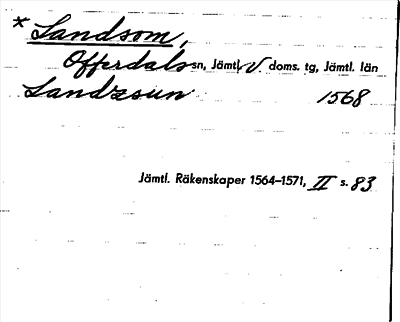 * Landsom,
Offerdals sn, Jämtl. V. doms. tg, Jämtl. län
Landzsun 1568
Jämtl. Räkenskaper 1564–1571, II s. 83